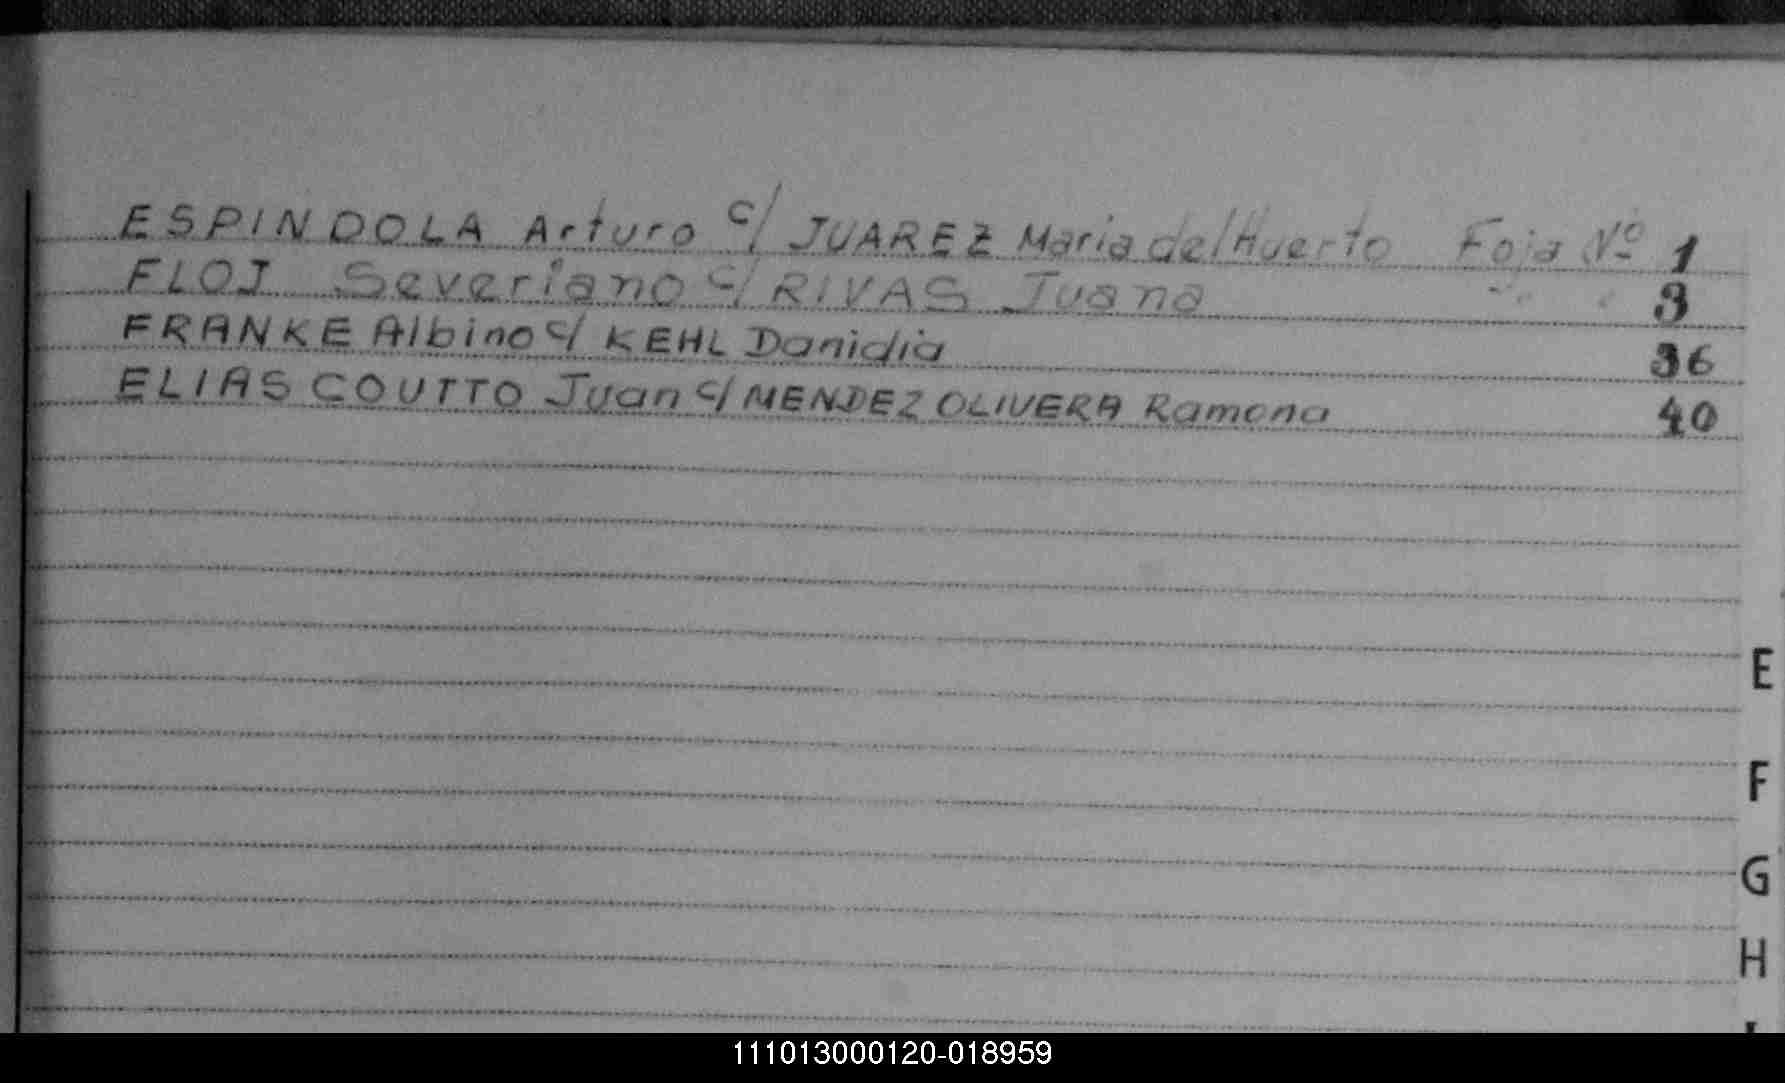 ESPINDOLA Arturo c/ JUAREZ Maria del Huerto Foja Nº 1
FLOJ Severiano c/ RIVAS Juana " " 3
FRANKE Albino c/ KEHL Danidia 36
ELIAS COUTTO Juan c/ MENDEZ OLIVERA Ramona 40
E
F
G
H
111013000120-018959